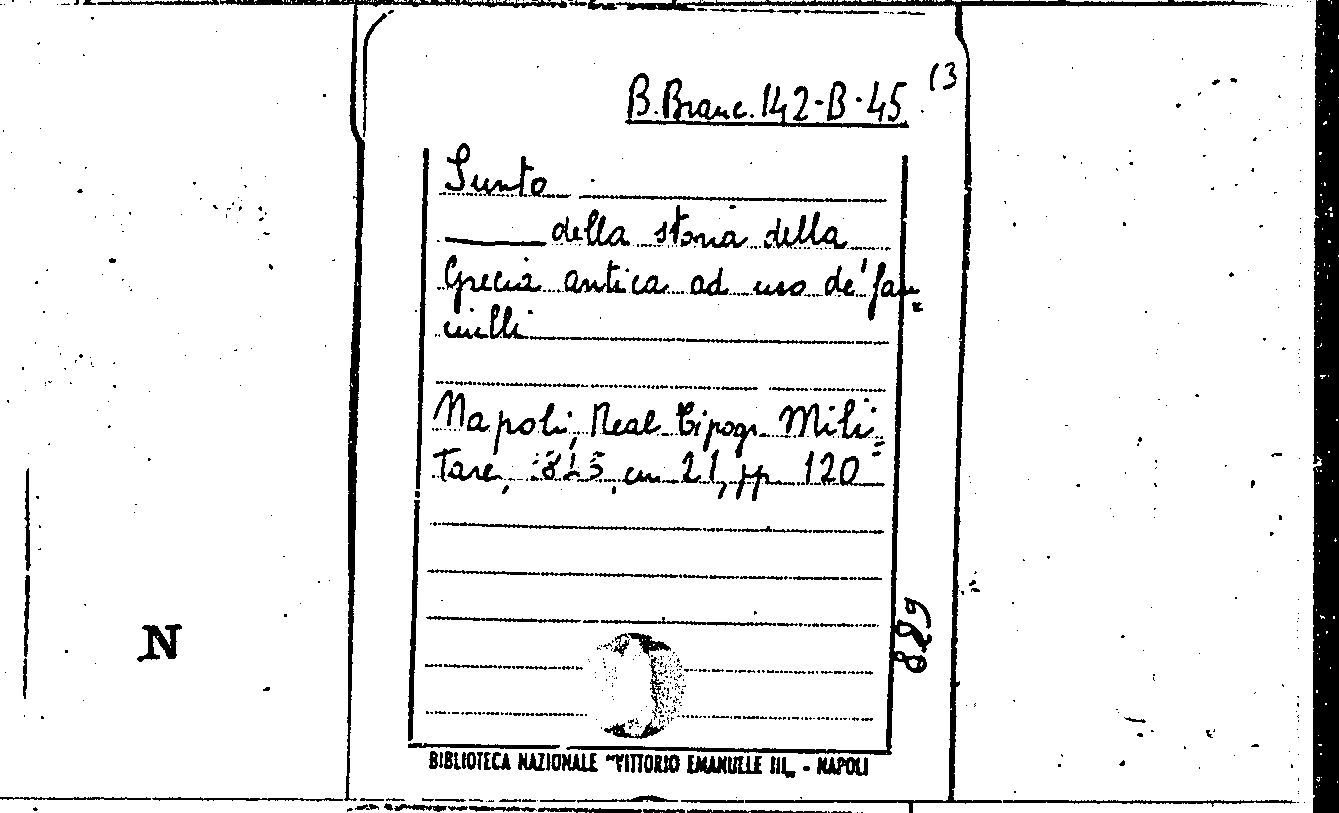 B. Branc. 142-B-45 (3
Sunto
____ della storia della
Grecia antica ad uso de' fan=
ciulli
Napoli, Real Tipogr. Mili=
tare, 1825, cm 21, pp. 120
829
N
BIBLIOTECA NAZIONALE "VITTORIO EMANUELE III„ - NAPOLI